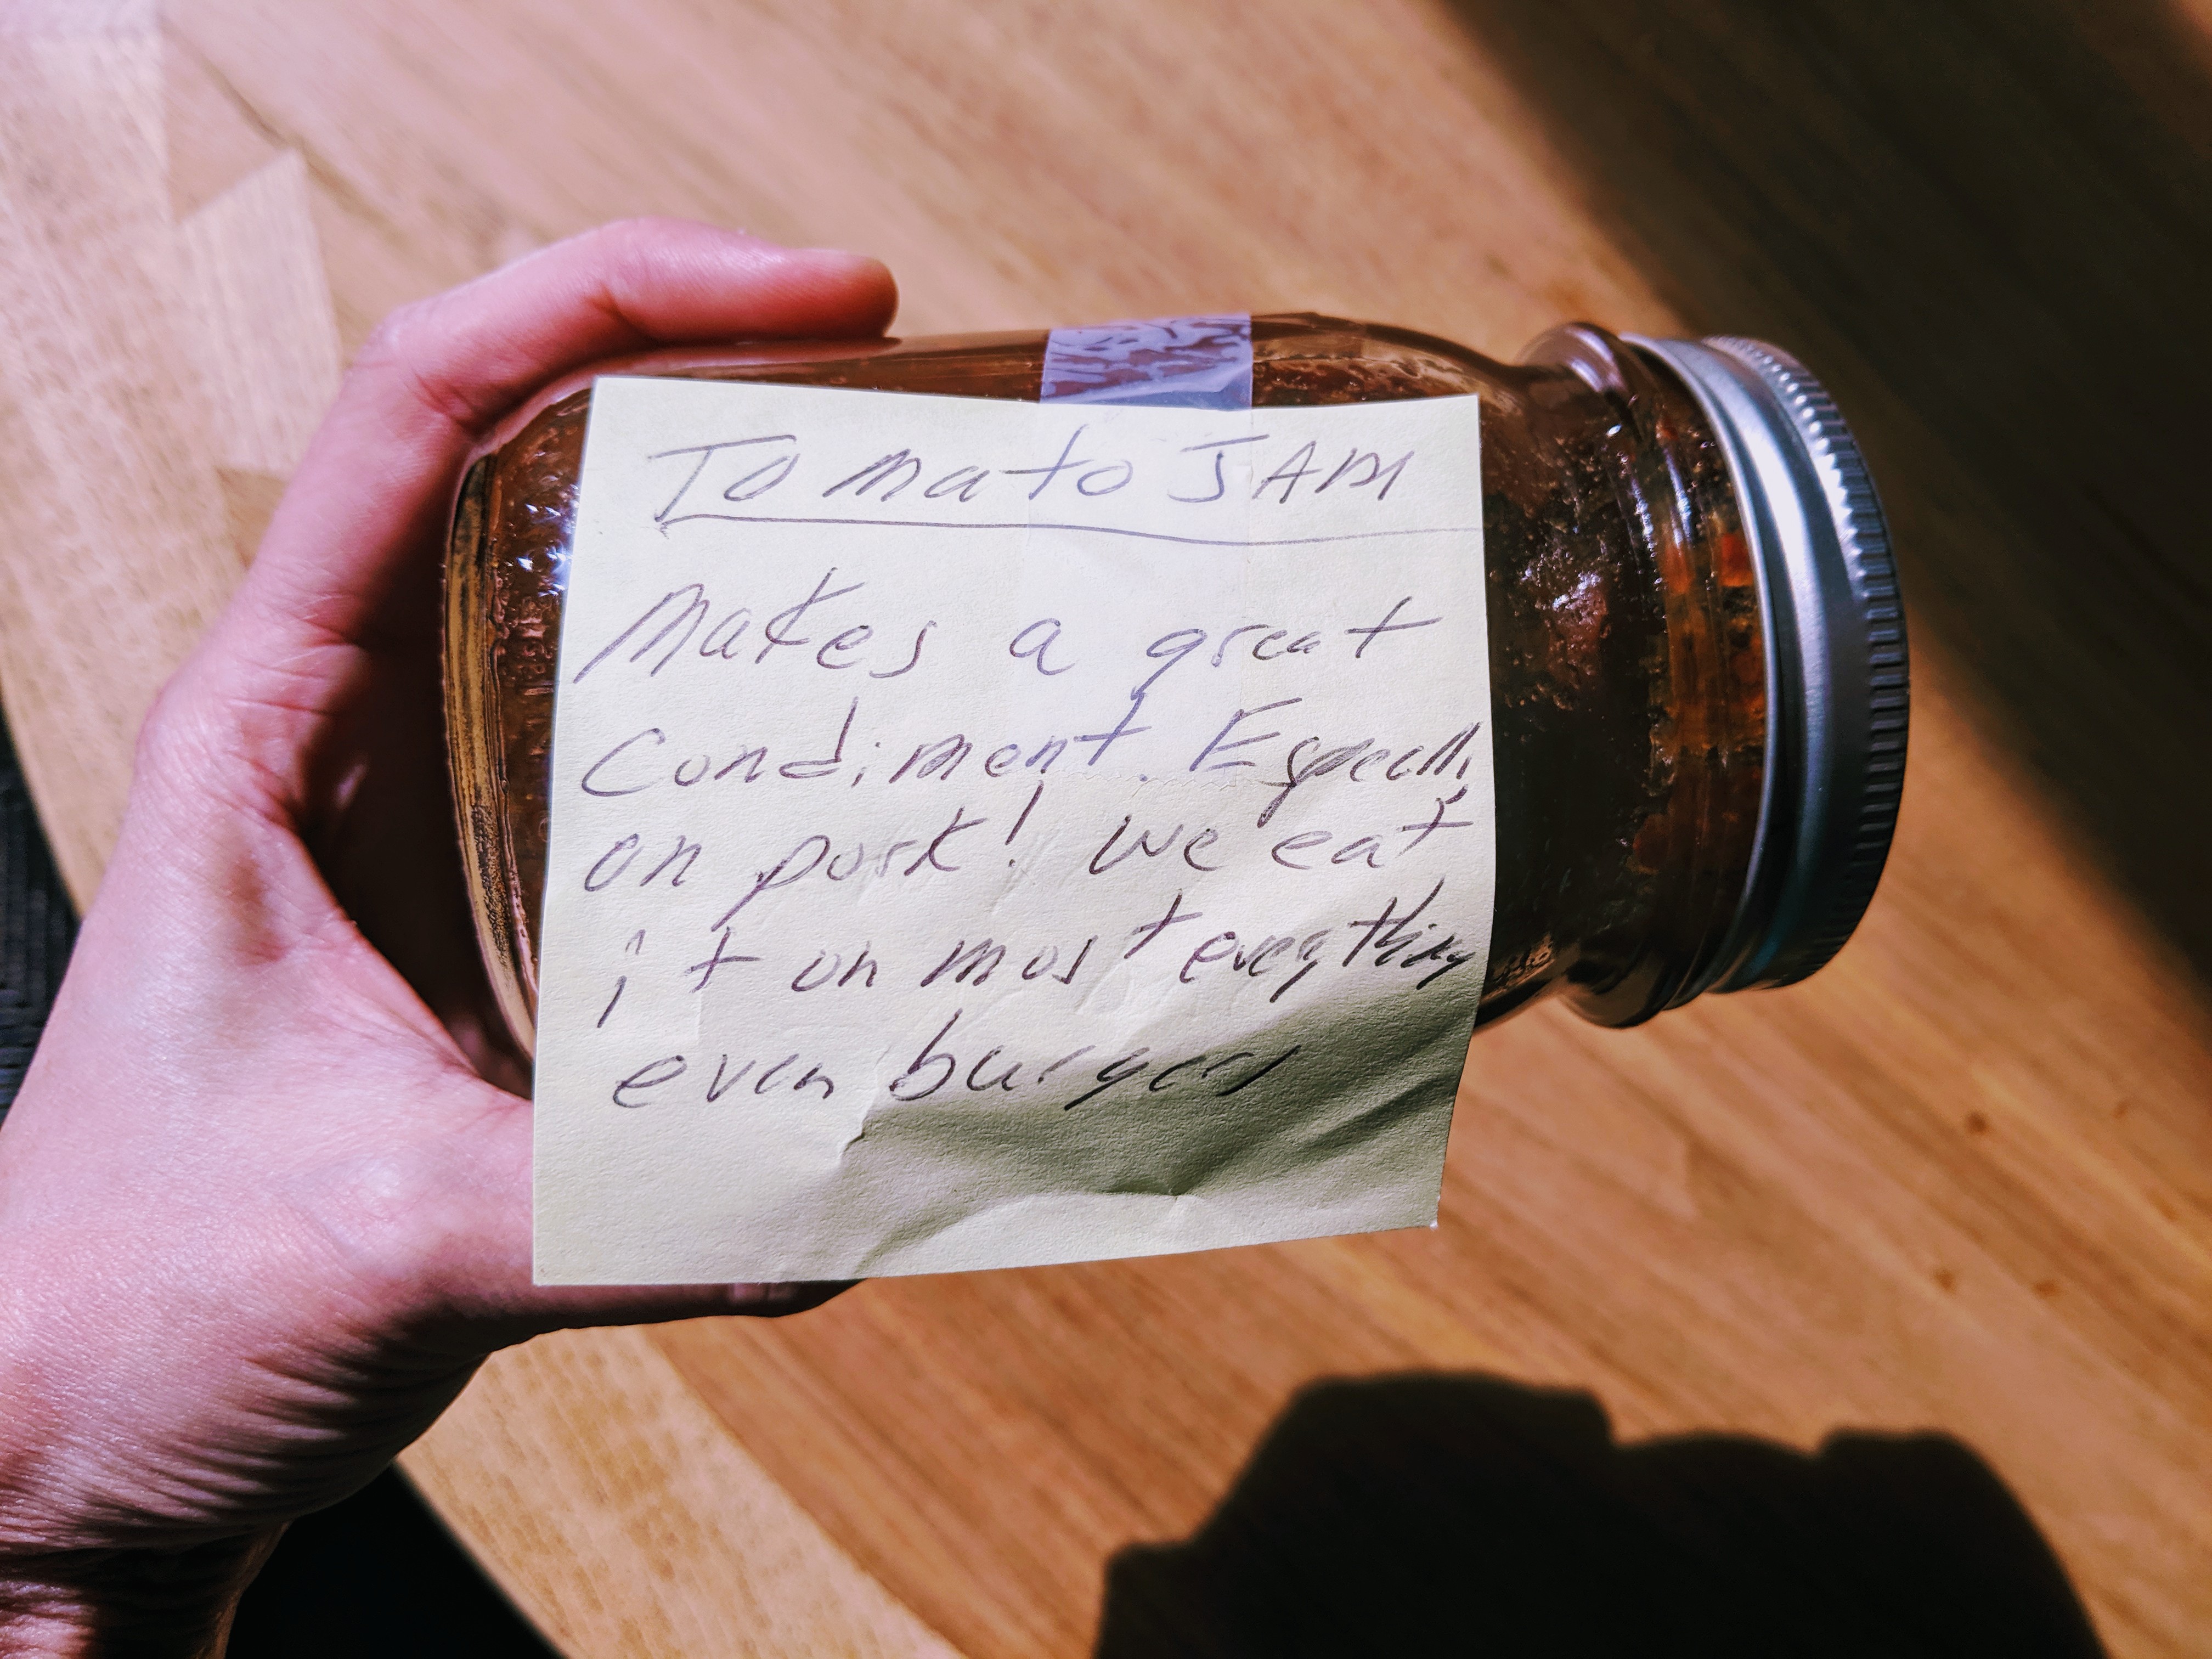 Tomato JAM
Makes a great
Condiment. Especially
on pork! We eat
it on most everything
even burgers